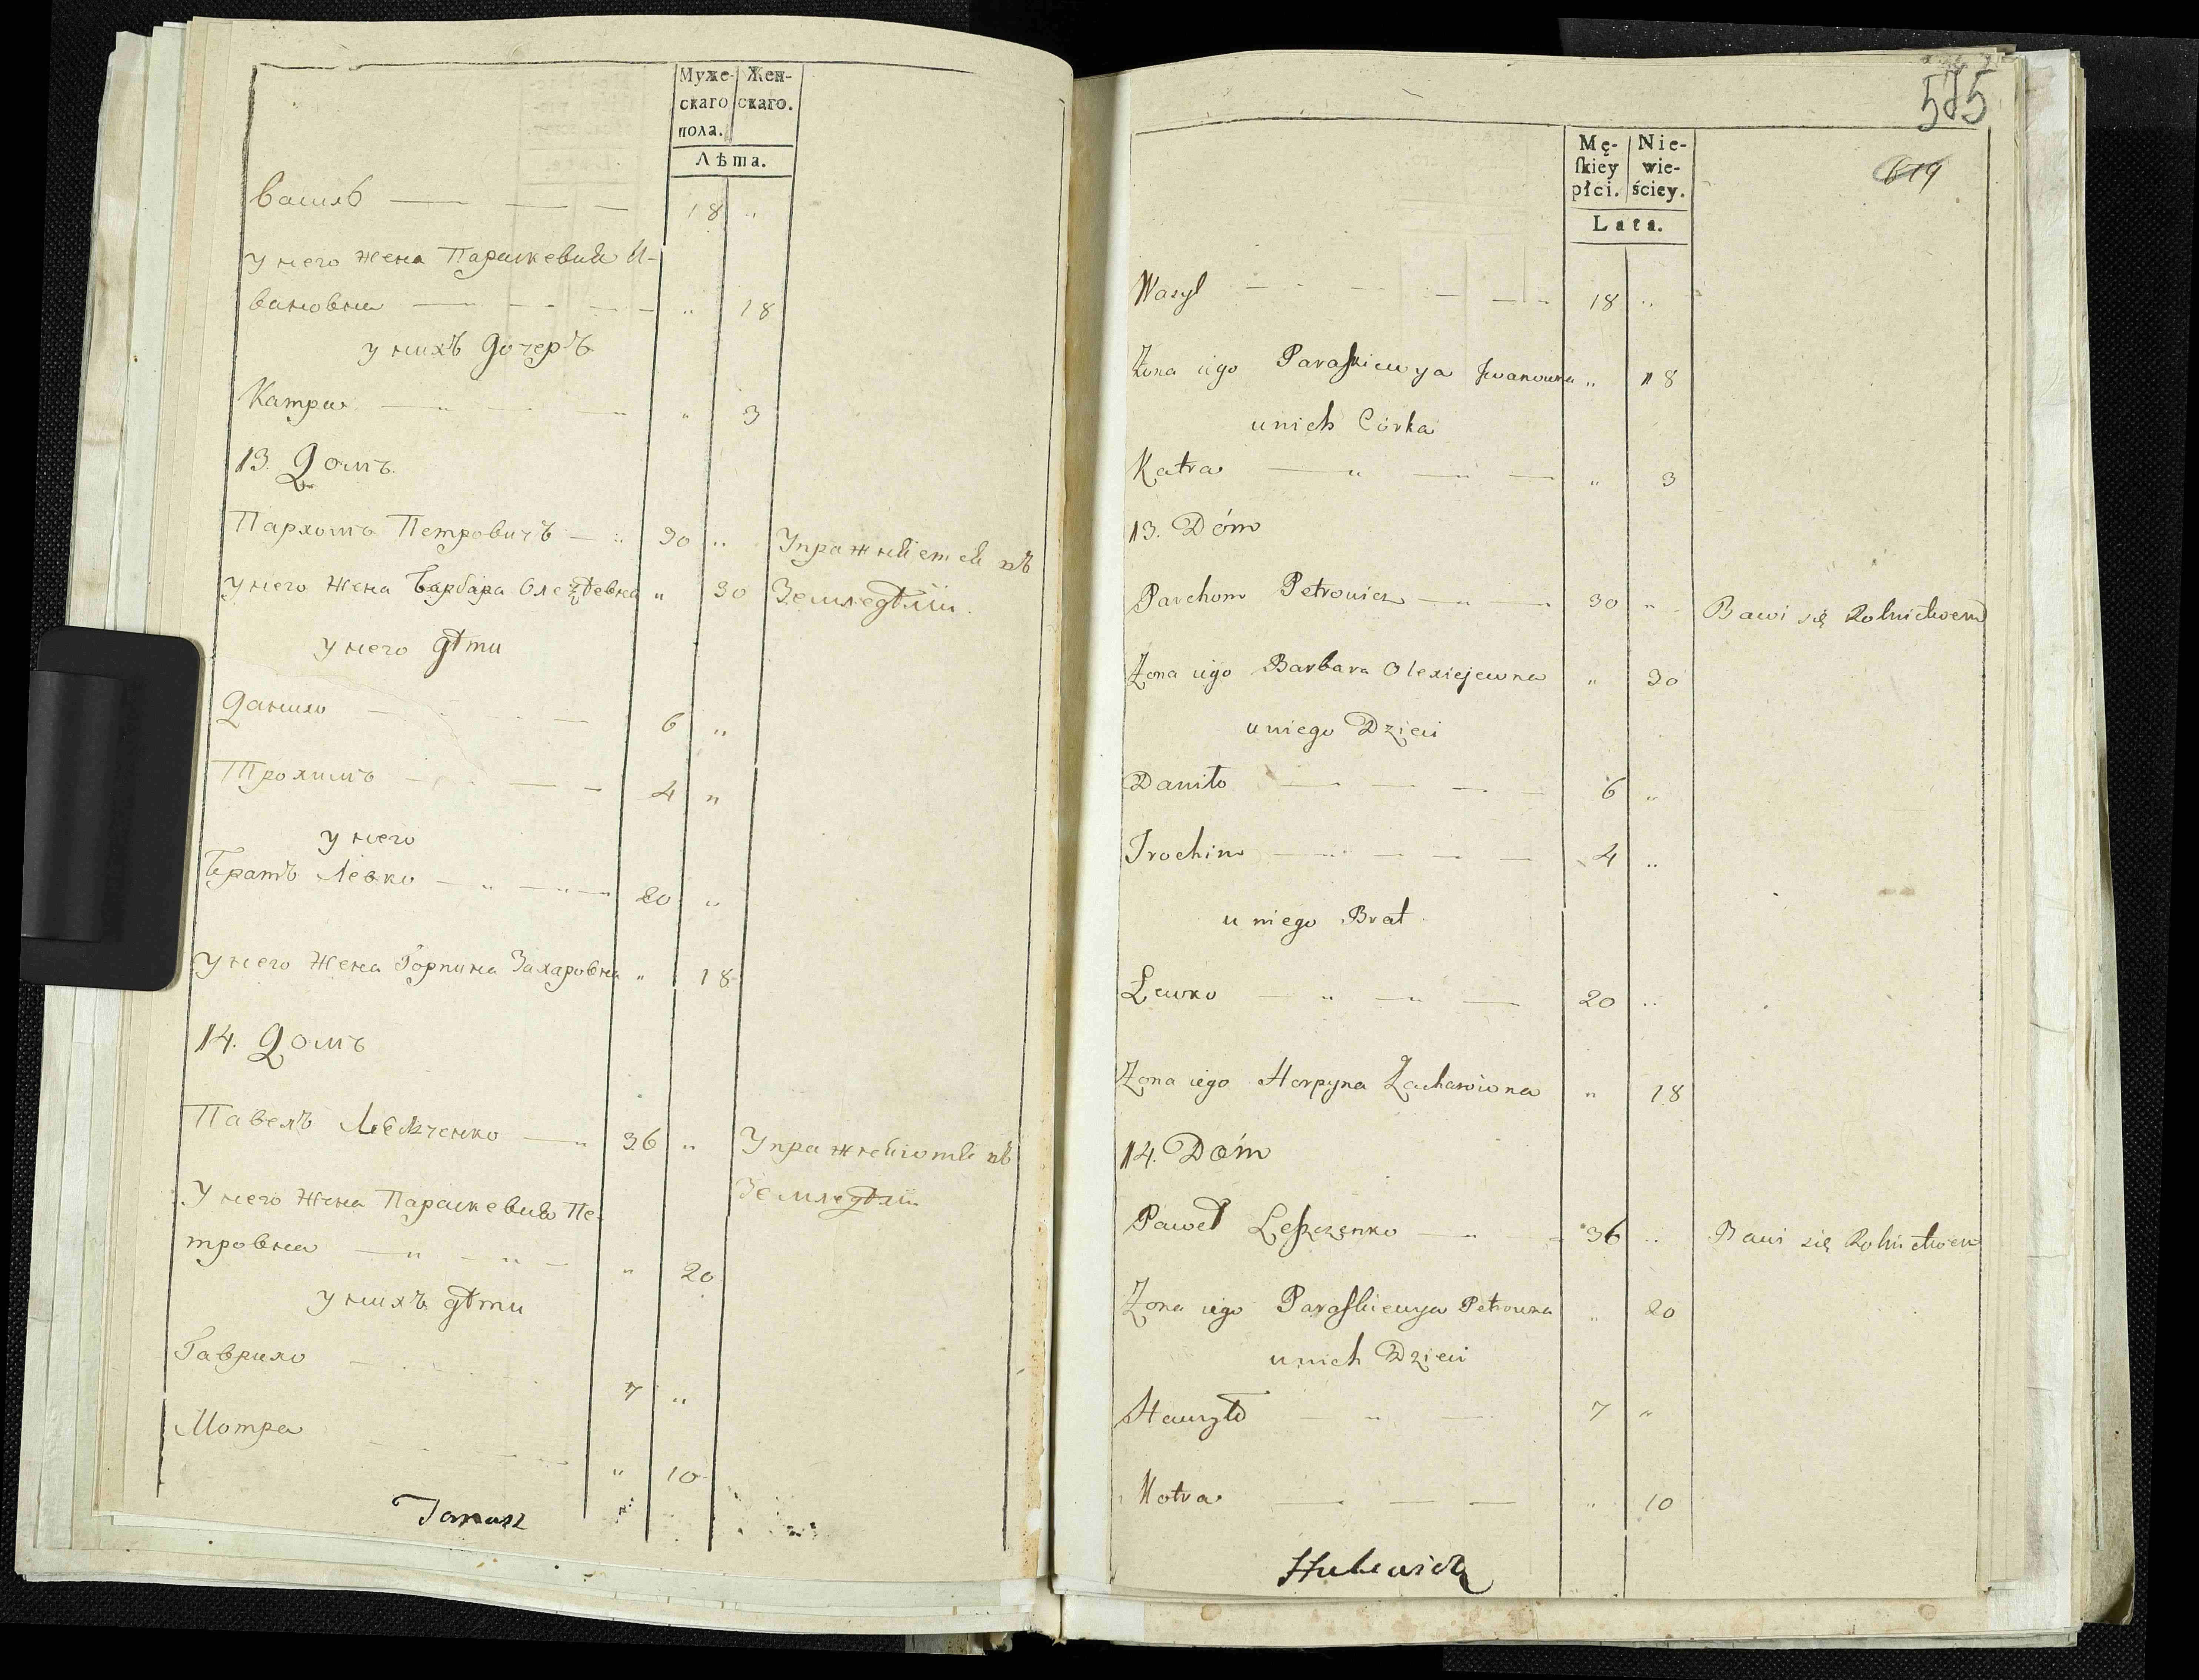 Муже- Жен-
скаго скаго.
пола.
Лѣта.
Василь — — — 18 "
у него жена Параскевия И-
вановна — — — " 18
у нихъ дочеръ
Катра — — — " 3
13. Домъ.
Пархомъ Петровичъ — 30 " Упражняется въ
у него жена Барбара Олексѣевна " 30 Земледѣлии.
у него дѣти
Данило — — — 6 "
Трохимъ — — — 4 "
у него
Братъ Левко — " — " — 20 "
у него жена Горпина Захаровна " 18
14. Домъ
Павелъ — " 36 " Упражняются въ
У него жена Параскевия Пе- Земледѣлии
тровна — " — " — " 20
у нихъ дѣти
Гаврило — 7 "
Мотра — " 10
Janusz
585
619
Mę- Nie-
ſkiey wie-
płci. ściey.
Lata.
Wasyl — — — — 18 "
Żona iego Paraſkiewya Iwanowna " 18
u nich Córka
Katra — " — — " 3
13. Dóm
Parchom Petrowicz — " — 30 " Bawi się Rolnictwem
Żona iego Barbara Olexiejewna " 30
u niego Dzieci
Daniło — — — — 6 "
Trochim — " — — — 4 "
u niego Brat
Lewko — " — " — 20 "
Żona iego Horpyna Zacharowna " 18
14. Dóm
Paweł Leſzczenko — " — 36 " Bawi się Rolnictwem
Żona iego Paraſkiewya Petrowna " 20
u nich Dzieci
Hawryło — " — 7 "
Motra — — — " 10
Hulewicz